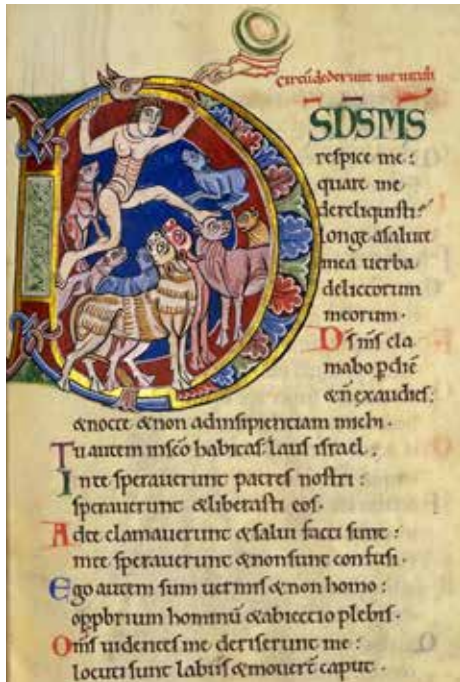 Circūdederunt me uituli
S DS MS
respice me:
quare me
dereliquisti:
longe asalute
mea uerba
delictorum
meorum.
Ds ms cla
mabo p diē
& n̄ exaudies:
& nocte & non adinsipientiam michi.
Tu autem insc̄o habitas: laus israel.
In te sperauerunt patres nostri:
sperauerunt & liberasti eos.
Ad te clamauerunt & salui facti sunt:
in te sperauerunt & non sunt confusi.
Ego autem sum uermis & non homo:
opprbrium hominū & abiectio plebis.
Om̄s uidentes me deriserunt me:
locuti sunt labiis & mouer̄t caput.